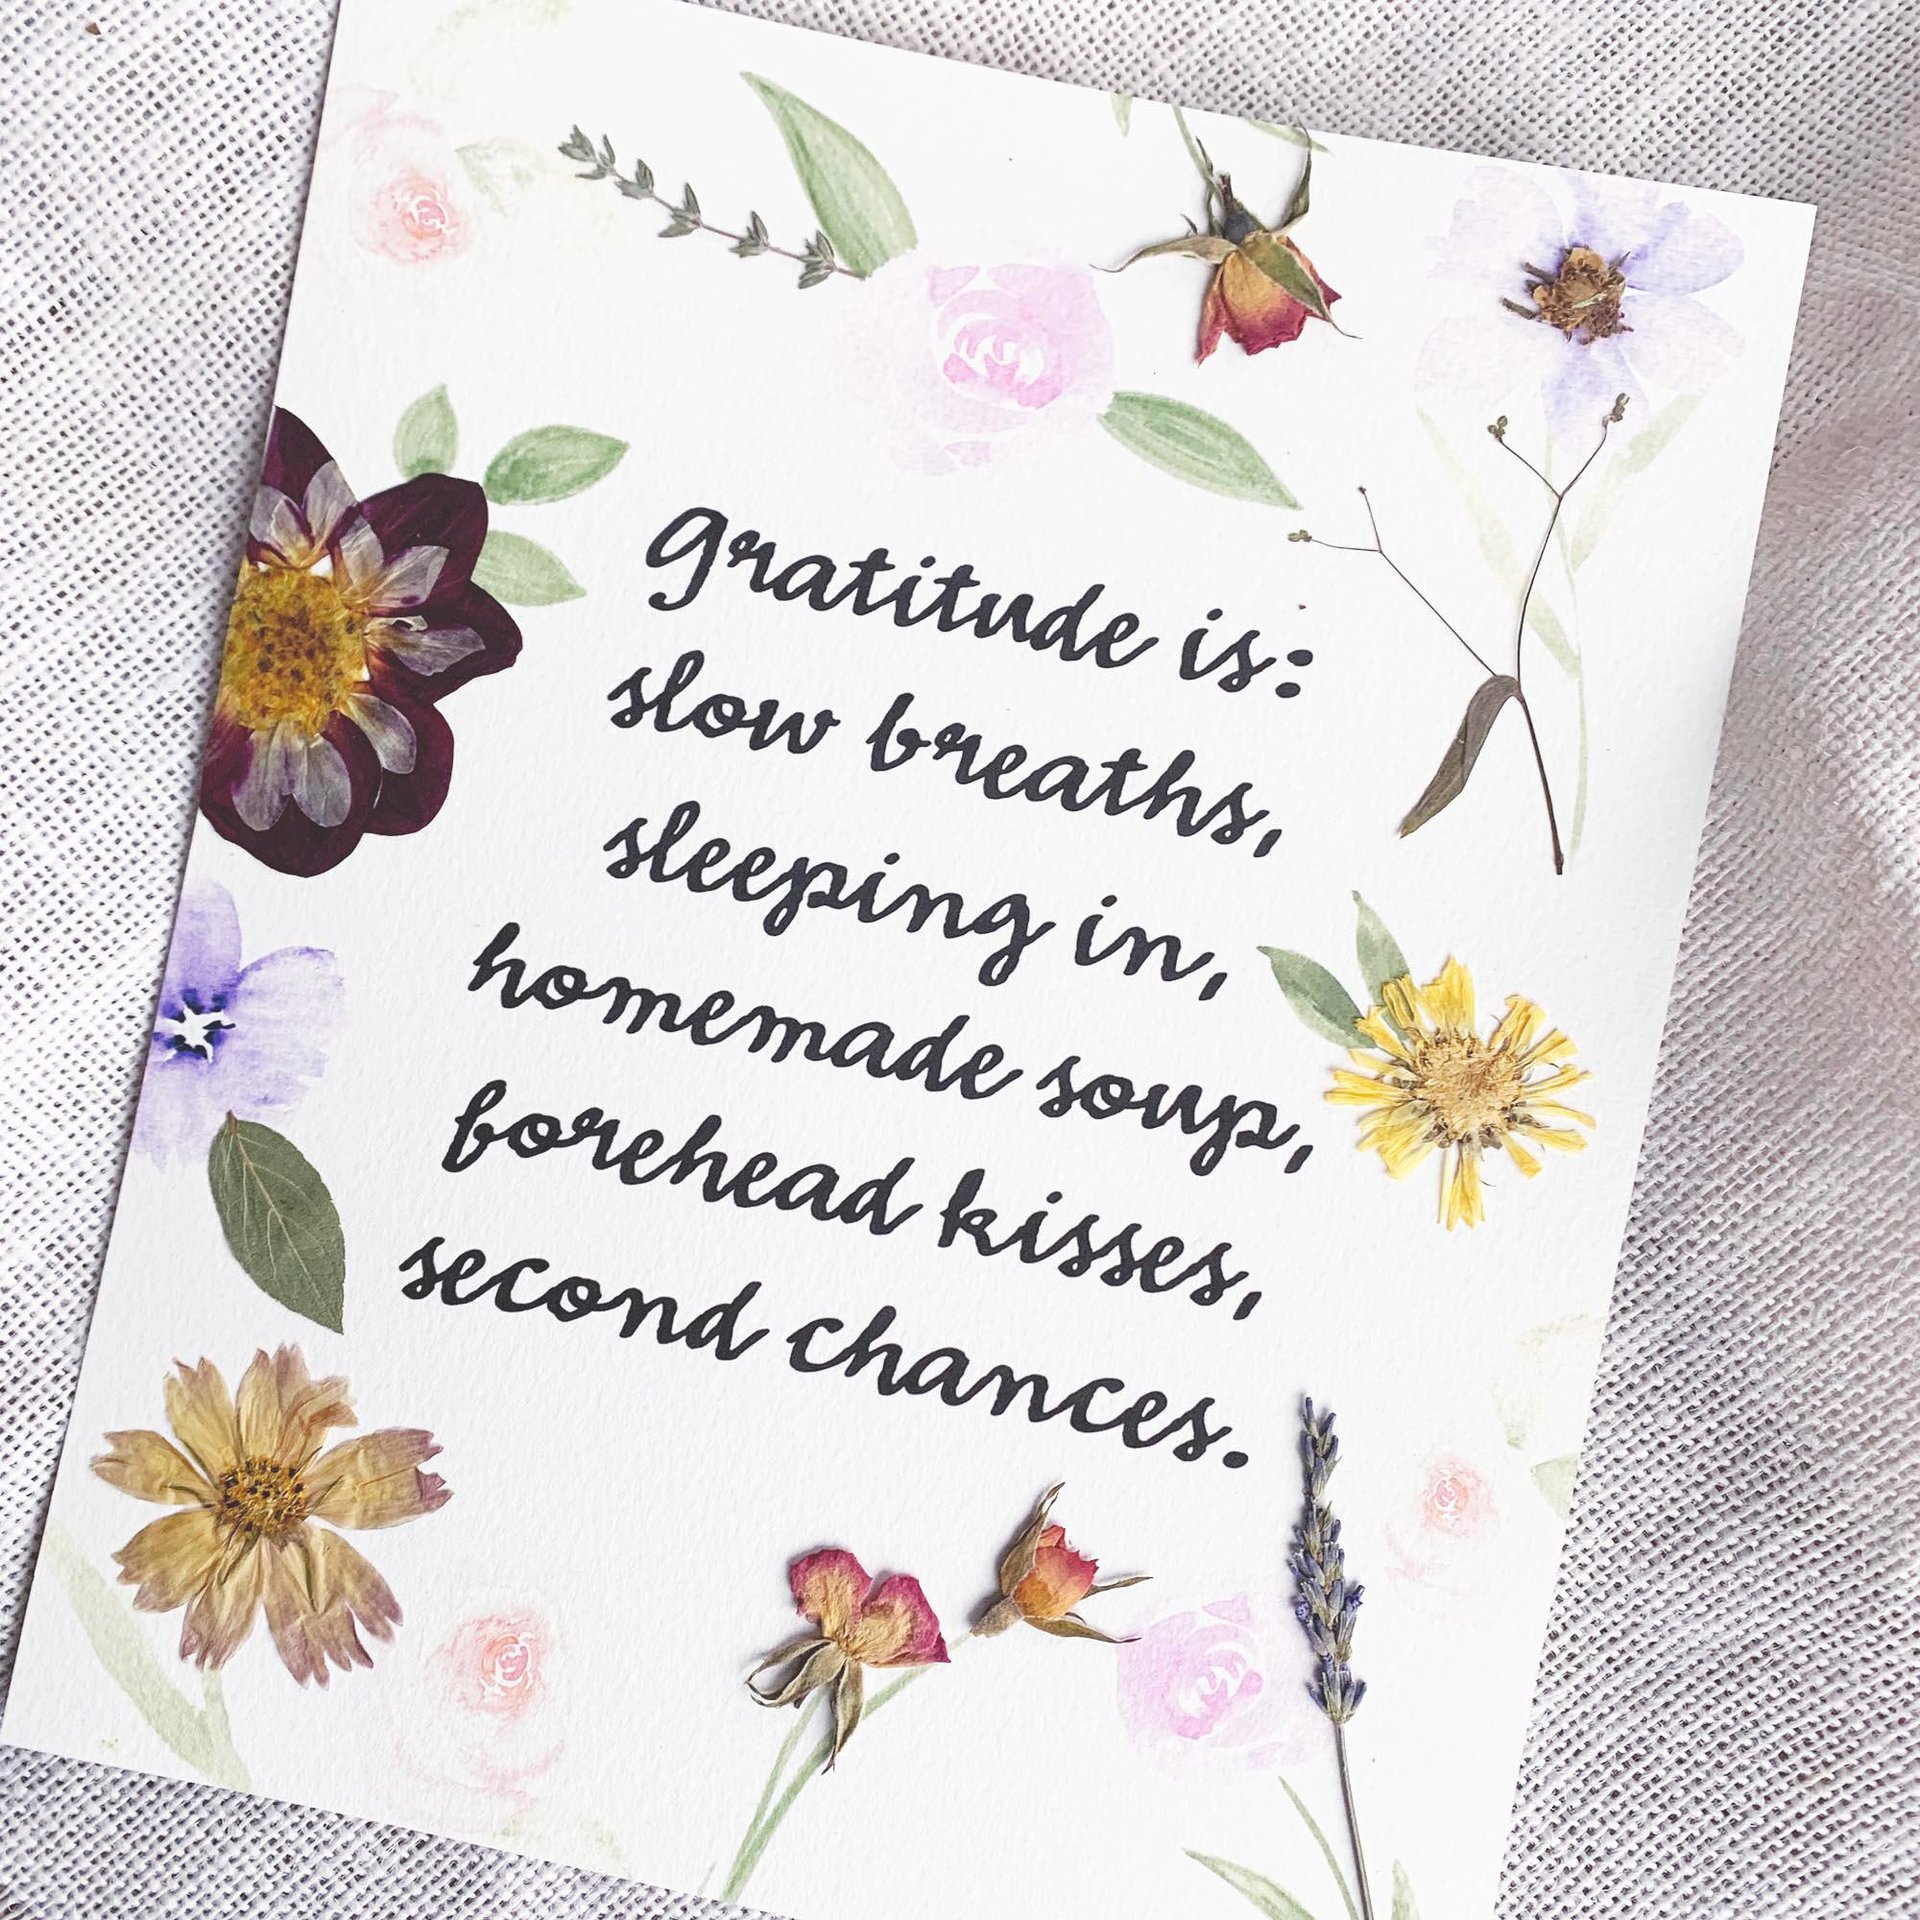 gratitude is:
slow breaths,
sleeping in,
homemade soup,
forehead kisses,
second chances.